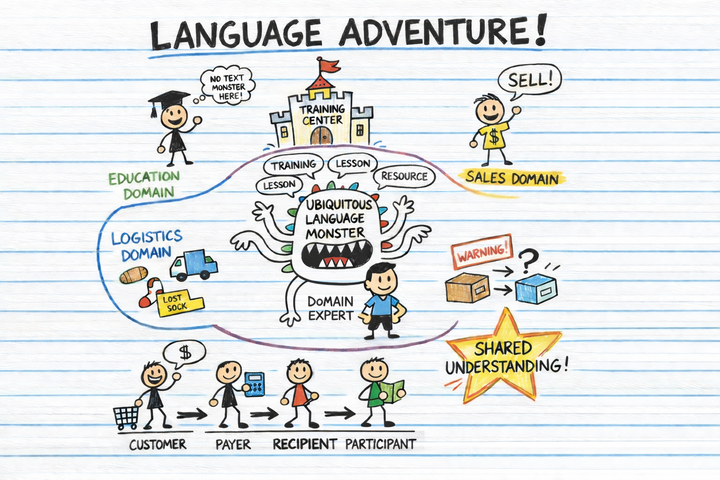 LANGUAGE ADVENTURE!
NO TEXT
MONSTER
HERE!
TRAINING
CENTER
SELL!
$
EDUCATION
DOMAIN
TRAINING
LESSON
LESSON
RESOURCE
SALES DOMAIN
UBIQUITOUS
LANGUAGE
MONSTER
LOGISTICS
DOMAIN
LOST
SOCK
WARNING!
?
DOMAIN
EXPERT
SHARED
UNDERSTANDING!
$
CUSTOMER
PAYER
RECIPIENT
PARTICIPANT